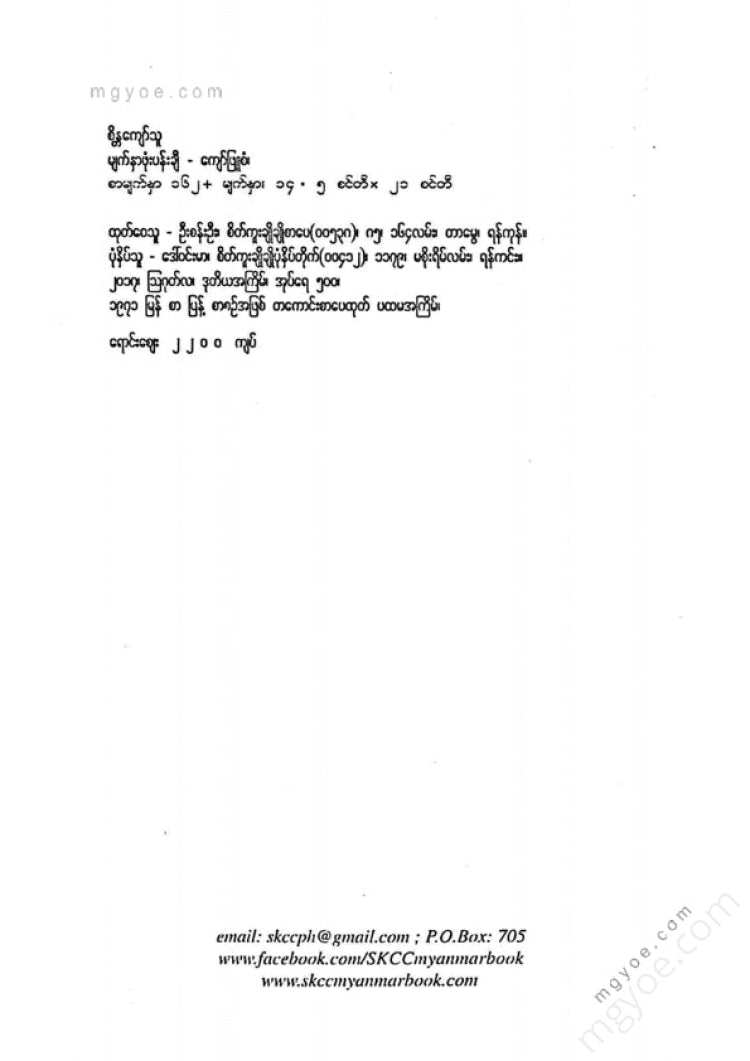 mgyoe.com
စိန္တကျော်သူ
မျက်နှာဖုံးပန်းချီ - ကျော်ဖြူစံ၊
စာမျက်နှာ ၁၆၂+ မျက်နှာ၊ ၁၄ . ၅ စင်တီ× ၂၁ စင်တီ
ထုတ်ဝေသူ - ဦးစန်းဦး၊ စိတ်ကူးချိုချိုစာပေ(၀၀၅၃၈)၊ ဂ၅၊ ၁၆၄လမ်း၊ တာမွေ၊ ရန်ကုန်။
ပုံနှိပ်သူ - ဒေါ်ဝင်းမာ၊ စိတ်ကူးချိုချိုပုံနှိပ်တိုက်(၀၀၄၁၂)၊ ၁၁၇၉၊ မစိုးရိမ်လမ်း၊ ရန်ကင်း။
၂၀၁၇၊ ဩဂုတ်လ၊ ဒုတိယအကြိမ်၊ အုပ်ရေ ၅၀၀၊
၁၉၇၁ မြန် စာ ပြန့် စာစဉ်အဖြစ် တကောင်းစာပေထုတ် ပထမအကြိမ်၊
ရောင်းဈေး ၂၂၀၀ ကျပ်
email: skccph@gmail.com ; P.O.Box: 705
www.facebook.com/SKCCmyanmarbook
www.skccmyanmarbook.com
mgyoe.com
mgyoe.com